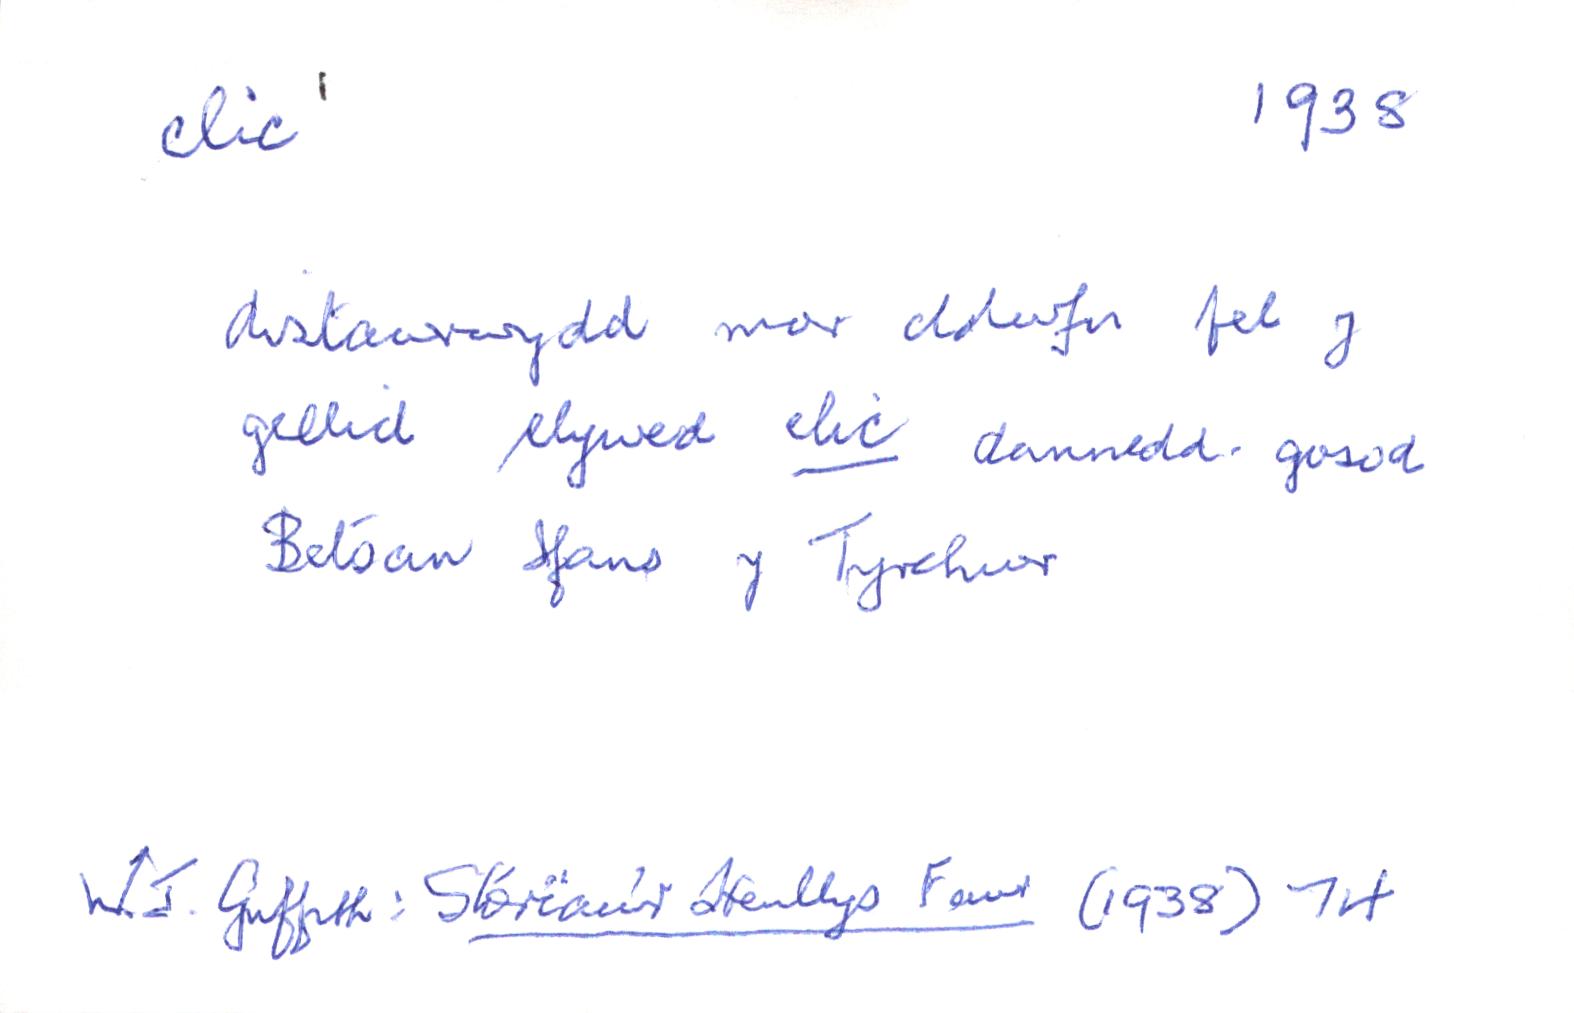 clic¹ 1938
distawrwydd mor ddwfn fel y
gellid clywed clic dannedd-gosod
Betsan Ifans y Tyrchwr
W.J. Gruffith: Storïau'r Henllys Fawr (1938) 74